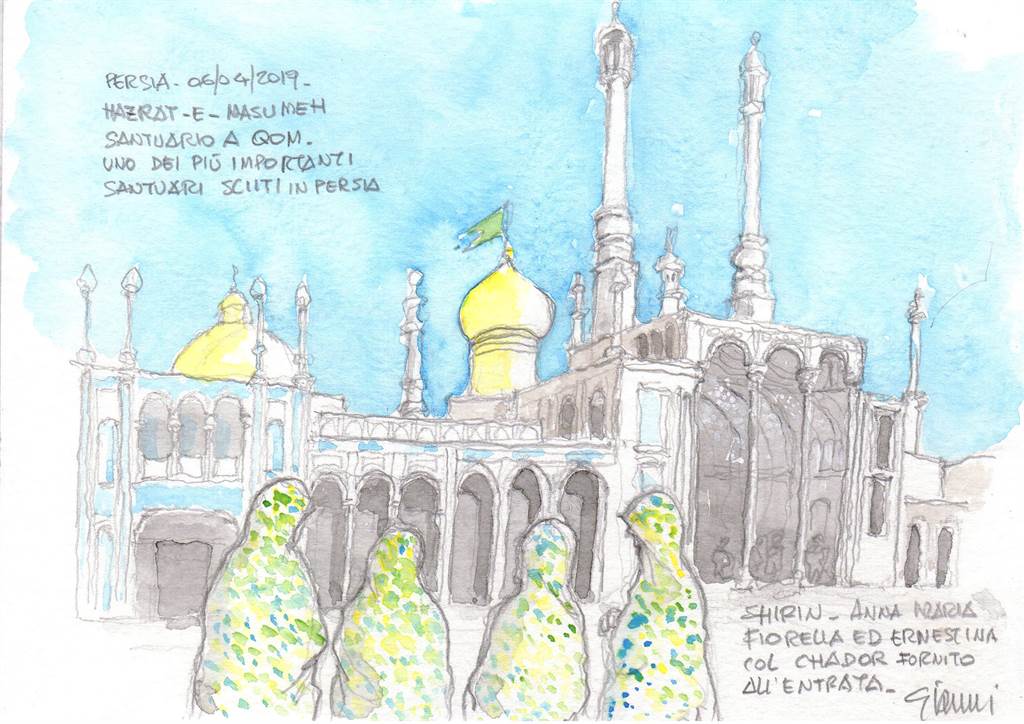 PERSIA - 06/04/2019 -
HAZRAT-E-MASUMEH
SANTUARIO A QOM.
UNO DEI PIÙ IMPORTANTI
SANTUARI SCIITI IN PERSIA
SHIRIN - ANNA MARIA
FIORELLA ED ERNESTINA
COL CHADOR FORNITO
ALL'ENTRATA -
Gianni